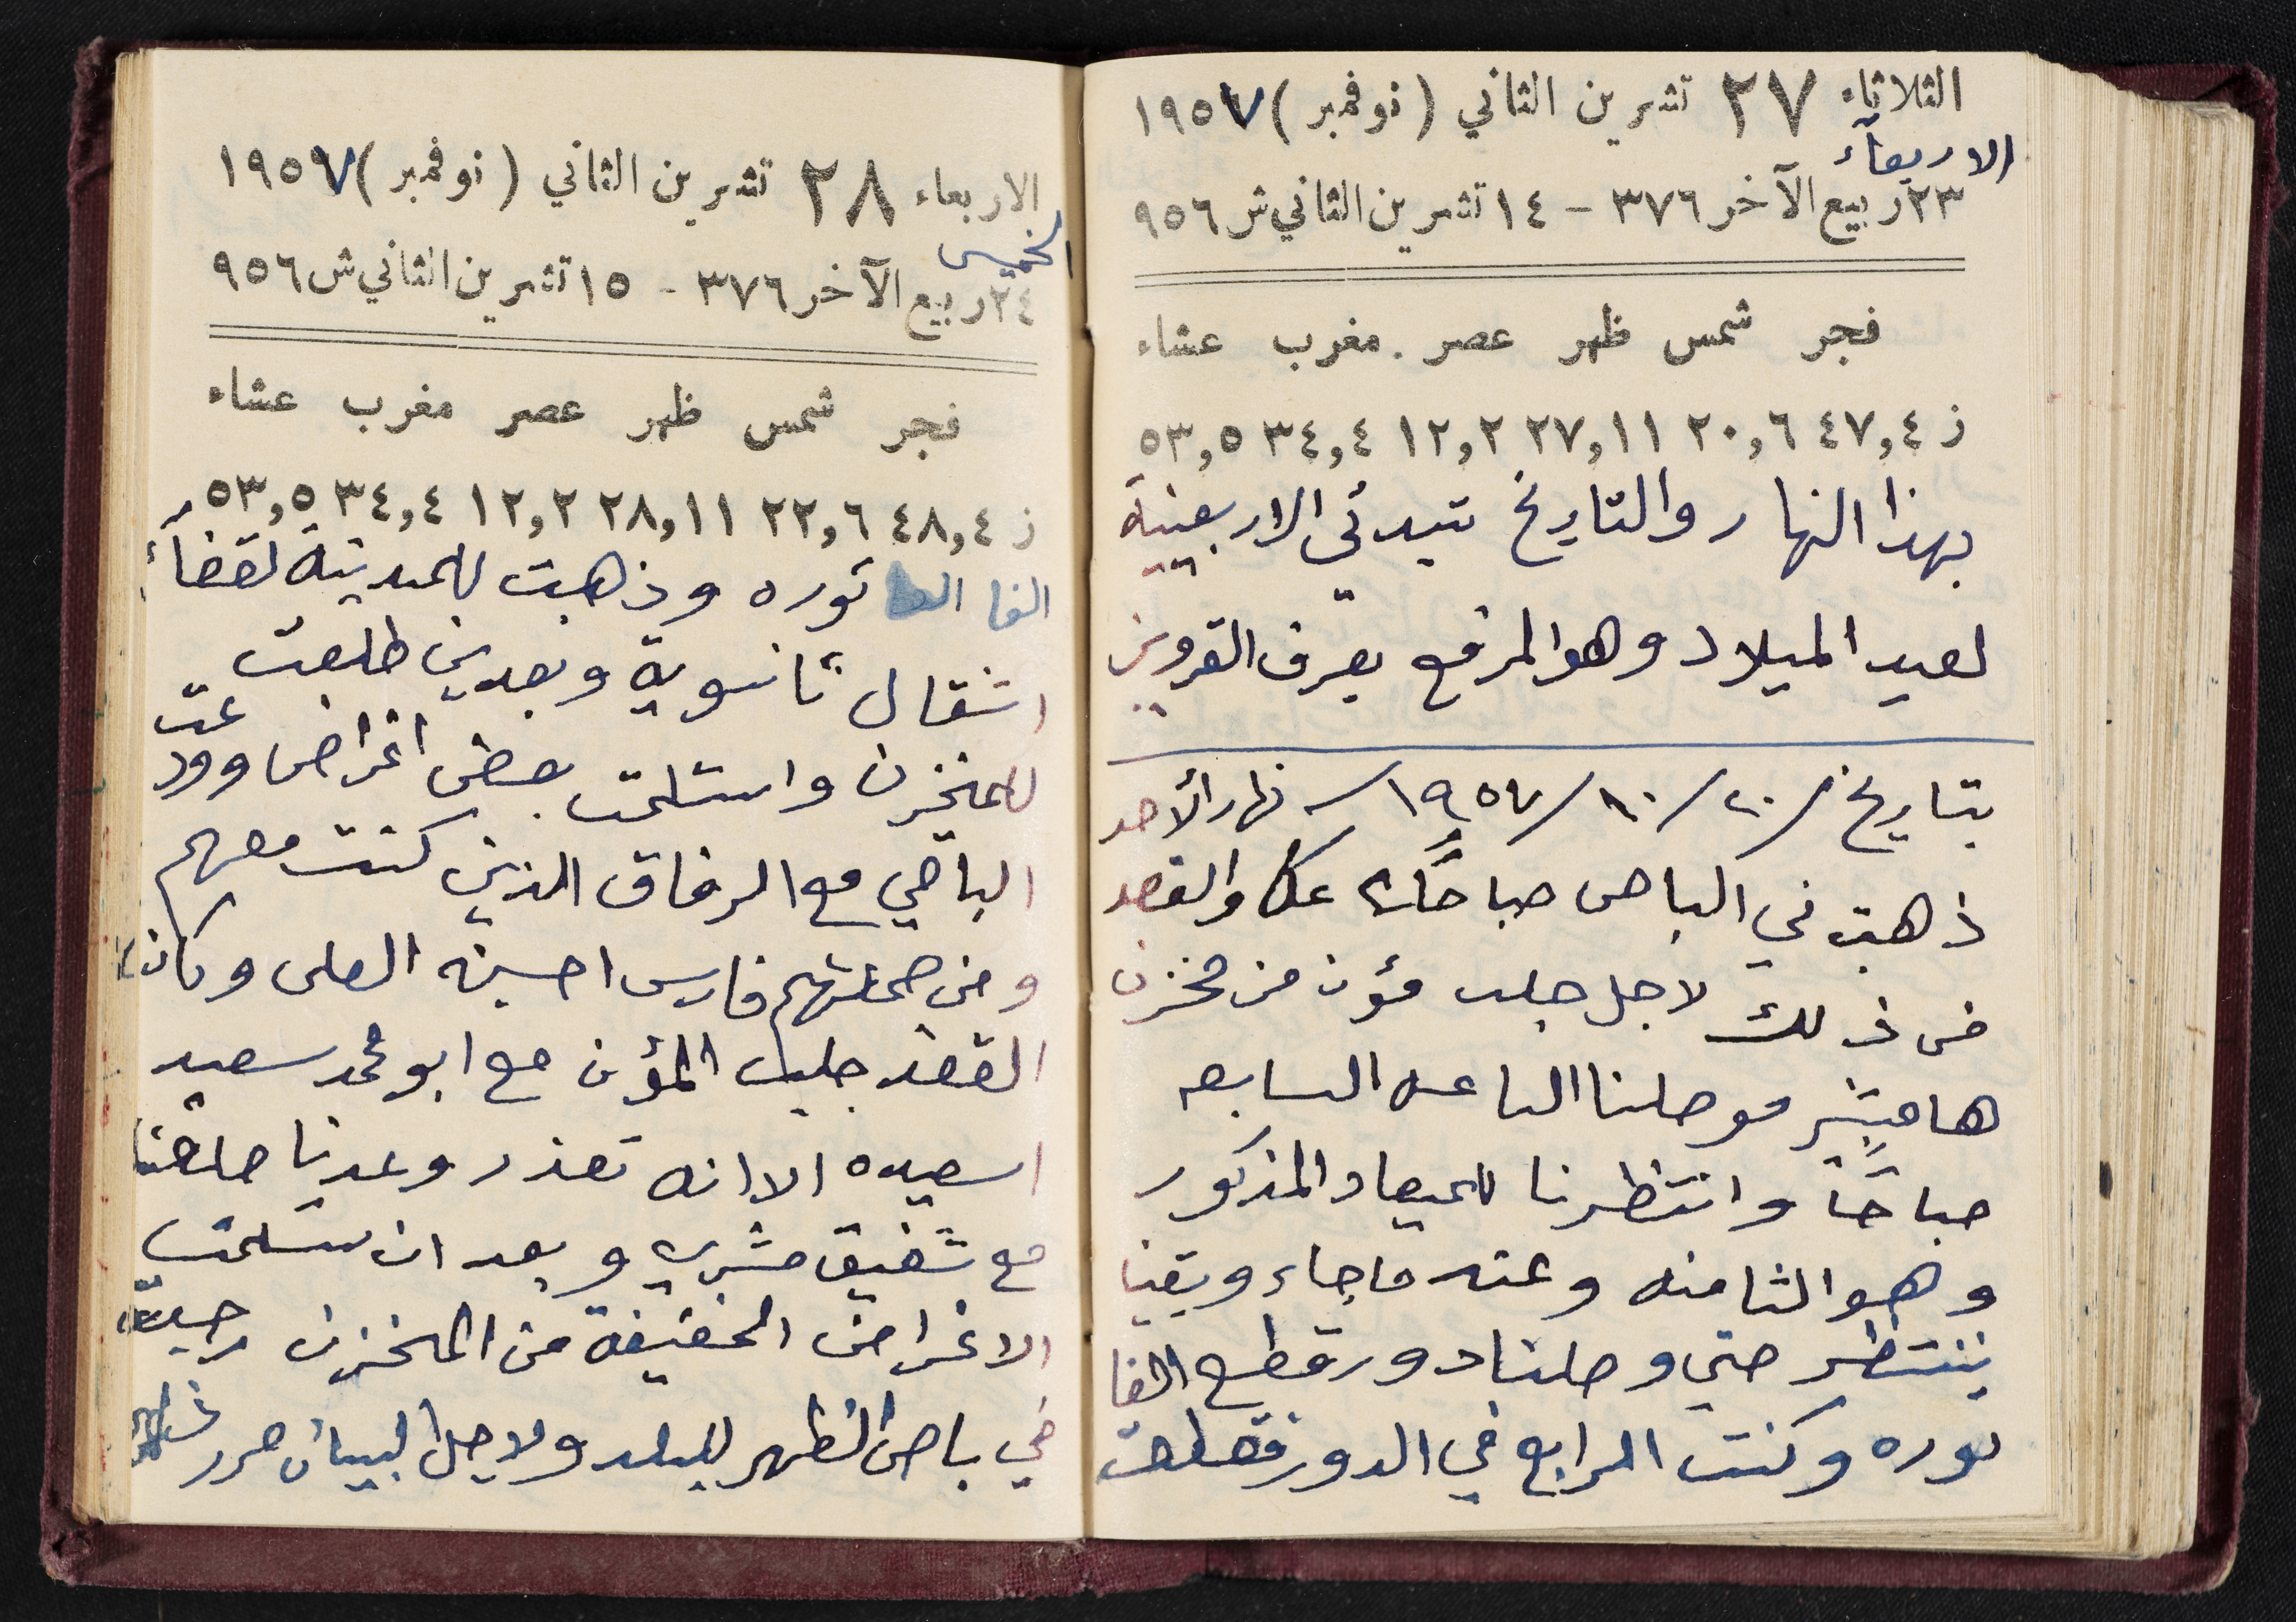 الثلاثاء ٢٧ تشرين الثاني (نوفمبر) ١٩٥٧
الاربعآء
٢٣ ربيع الآخر ٣٧٦ - ١٤ تشرين الثاني ش ٩٥٦
فجر شمس ظهر عصر مغرب عشاء
ز ٤٧,٤ ٢٠,٦ ٢٧,١١ ١٢,٢ ٣٤,٤ ٥٣,٥
بهذا النهار والتاريخ تبدئي الاربعينية
لعيد الميلاد وهو المرفع بعرف القرويين
بتاريخ ٢٠/١٠/١٩٥٧ نهار الأحد
ذهبت في الباص صباحًا عكا والقصد
من ذلك لاجل جلب مؤن من مخزن
هامشبير موصلنا الساعه السابعه
صباحًا وانتظرنا للميعاد المذكور
وهو الثامنه وعنده ما جاء وبقينا
ننتظر حتى وصلنا دور قطع الفا
توره وكنت الرابع في الدور فقطعت
الاربعاء ٢٨ تشرين الثاني (نوفمبر) ١٩٥٧
الخميس
٢٤ ربيع الآخر ٣٧٦ - ١٥ تشرين الثاني ش ٩٥٦
فجر شمس ظهر عصر مغرب عشاء
ز ٤٨,٤ ٢٢,٦ ٢٨,١١ ١٢,٢ ٣٤,٤ ٥٣,٥
الفا توره وذهبت للمدينة لقضآء
اشغال ثانوية وبعدين طلعت
للمخزن واستلمت بعض اغراض وودعت
الباقي مع الرفاق الذين كنت معهم
ومن جملتهم فارس احسين العلي وكان
القصد جلب المؤن مع ابو محمد سعيد
اسعيده الا انه تعذر وعدنا
مع شفيق مشرب وبعد ان ستلمت
الاغراض الخفيفة من المخزن رجعت
في باص الظهر للبلد ولاجل البيان حرر